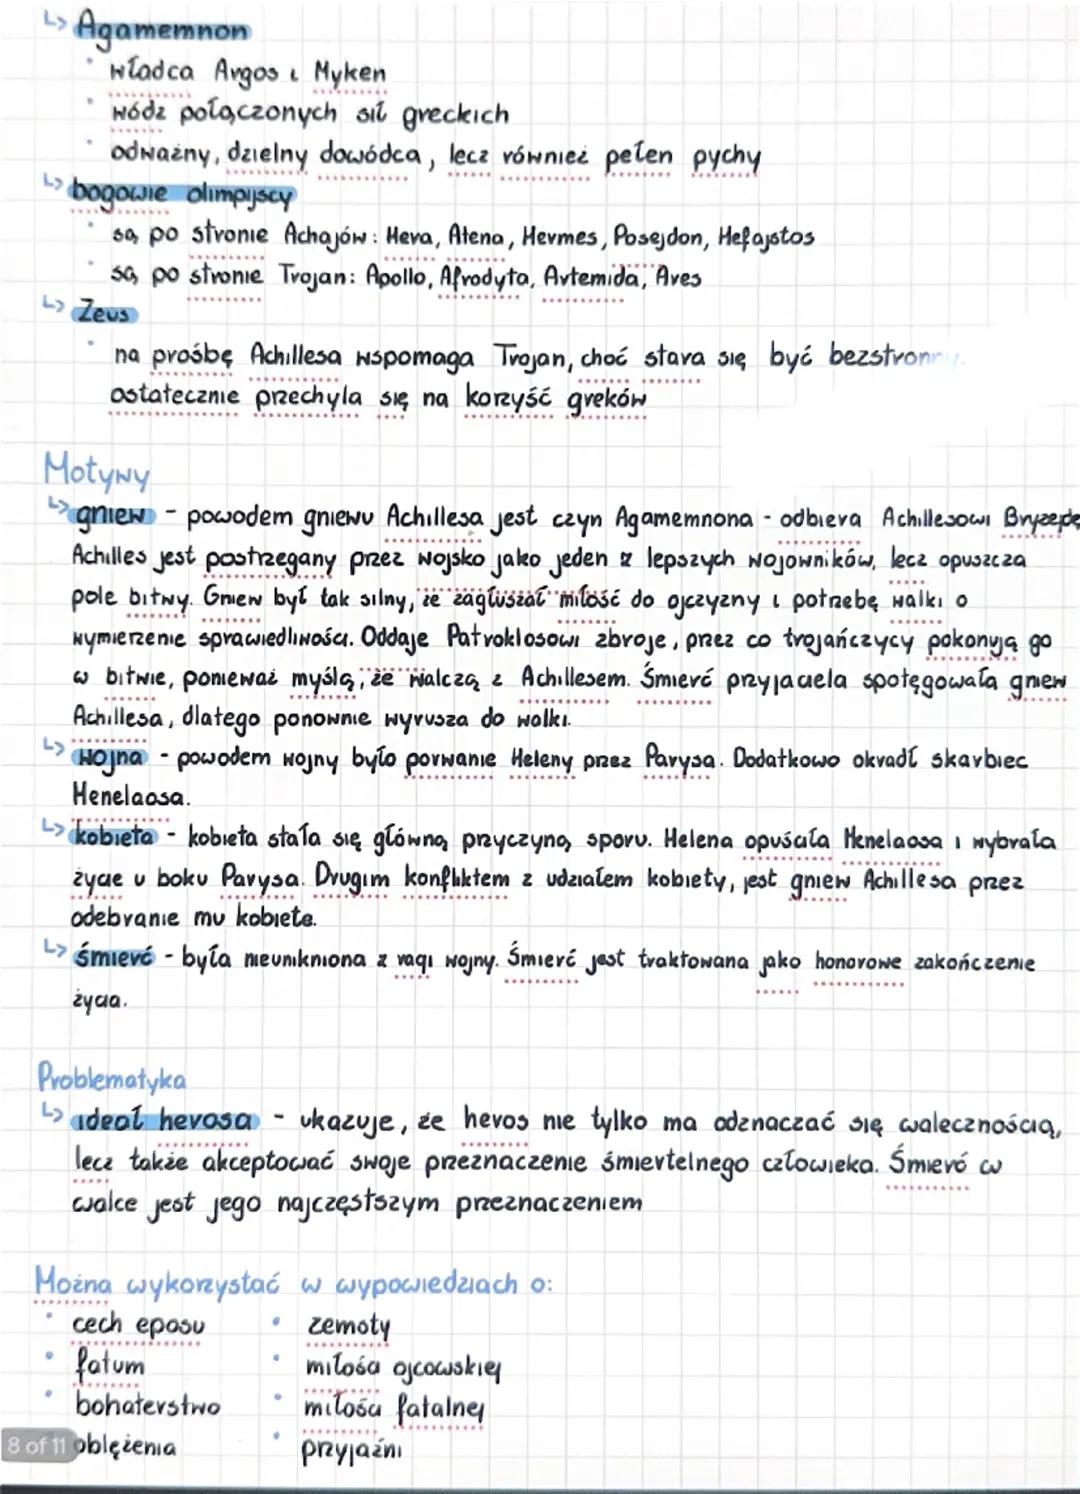 ↳ Agamemnon
• władca Argos i Myken
• wódz połączonych sił greckich
• odważny, dzielny dowódca, lecz również pełen pychy
↳ bogowie olimpijscy
• są po stronie Achajów: Hera, Atena, Hermes, Posejdon, Hefajstos
• są po stronie Trojan: Apollo, Afrodyta, Artemida, Ares
↳ Zeus
• na prośbę Achillesa wspomaga Trojan, choć stara się być bezstronny.
ostatecznie przechyla się na korzyść greków
Motywy
↳ gniew - powodem gniewu Achillesa jest czyn Agamemnona - odbiera Achillesowi Bryzejdę
Achilles jest postrzegany przez wojsko jako jeden z lepszych wojowników, lecz opuszcza
pole bitwy. Gniew był tak silny, że zagłuszał miłość do ojczyzny i potrzebę walki o
wymierzenie sprawiedliwości. Oddaje Patroklosowi zbroje, przez co trojańczycy pokonują go
w bitwie, ponieważ myślą, że walczą z Achillesem. Śmierć przyjaciela spotęgowała gniew
Achillesa, dlatego ponownie wyrusza do walki.
↳ wojna - powodem wojny było porwanie Heleny przez Parysa. Dodatkowo okradł skarbiec
Menelaosa.
↳ kobieta - kobieta stała się główną przyczyną sporu. Helena opuściła Menelaosa i wybrała
życie u boku Parysa. Drugim konfliktem z udziałem kobiety, jest gniew Achillesa przez
odebranie mu kobiete.
↳ śmierć - była nieunikniona z racji wojny. Śmierć jest traktowana jako honorowe zakończenie
życia.
Problematyka
↳ ideał herosa - ukazuje, że heros nie tylko ma odznaczać się walecznością,
lecz także akceptować swoje przeznaczenie śmiertelnego człowieka. Śmierć w
walce jest jego najczęstszym przeznaczeniem
Można wykorzystać w wypowiedziach o:
• cech eposu • zemsty
• fatum • miłości ojcowskiej
• bohaterstwo • miłości fatalnej
8 of 11 oblężenia • przyjaźni